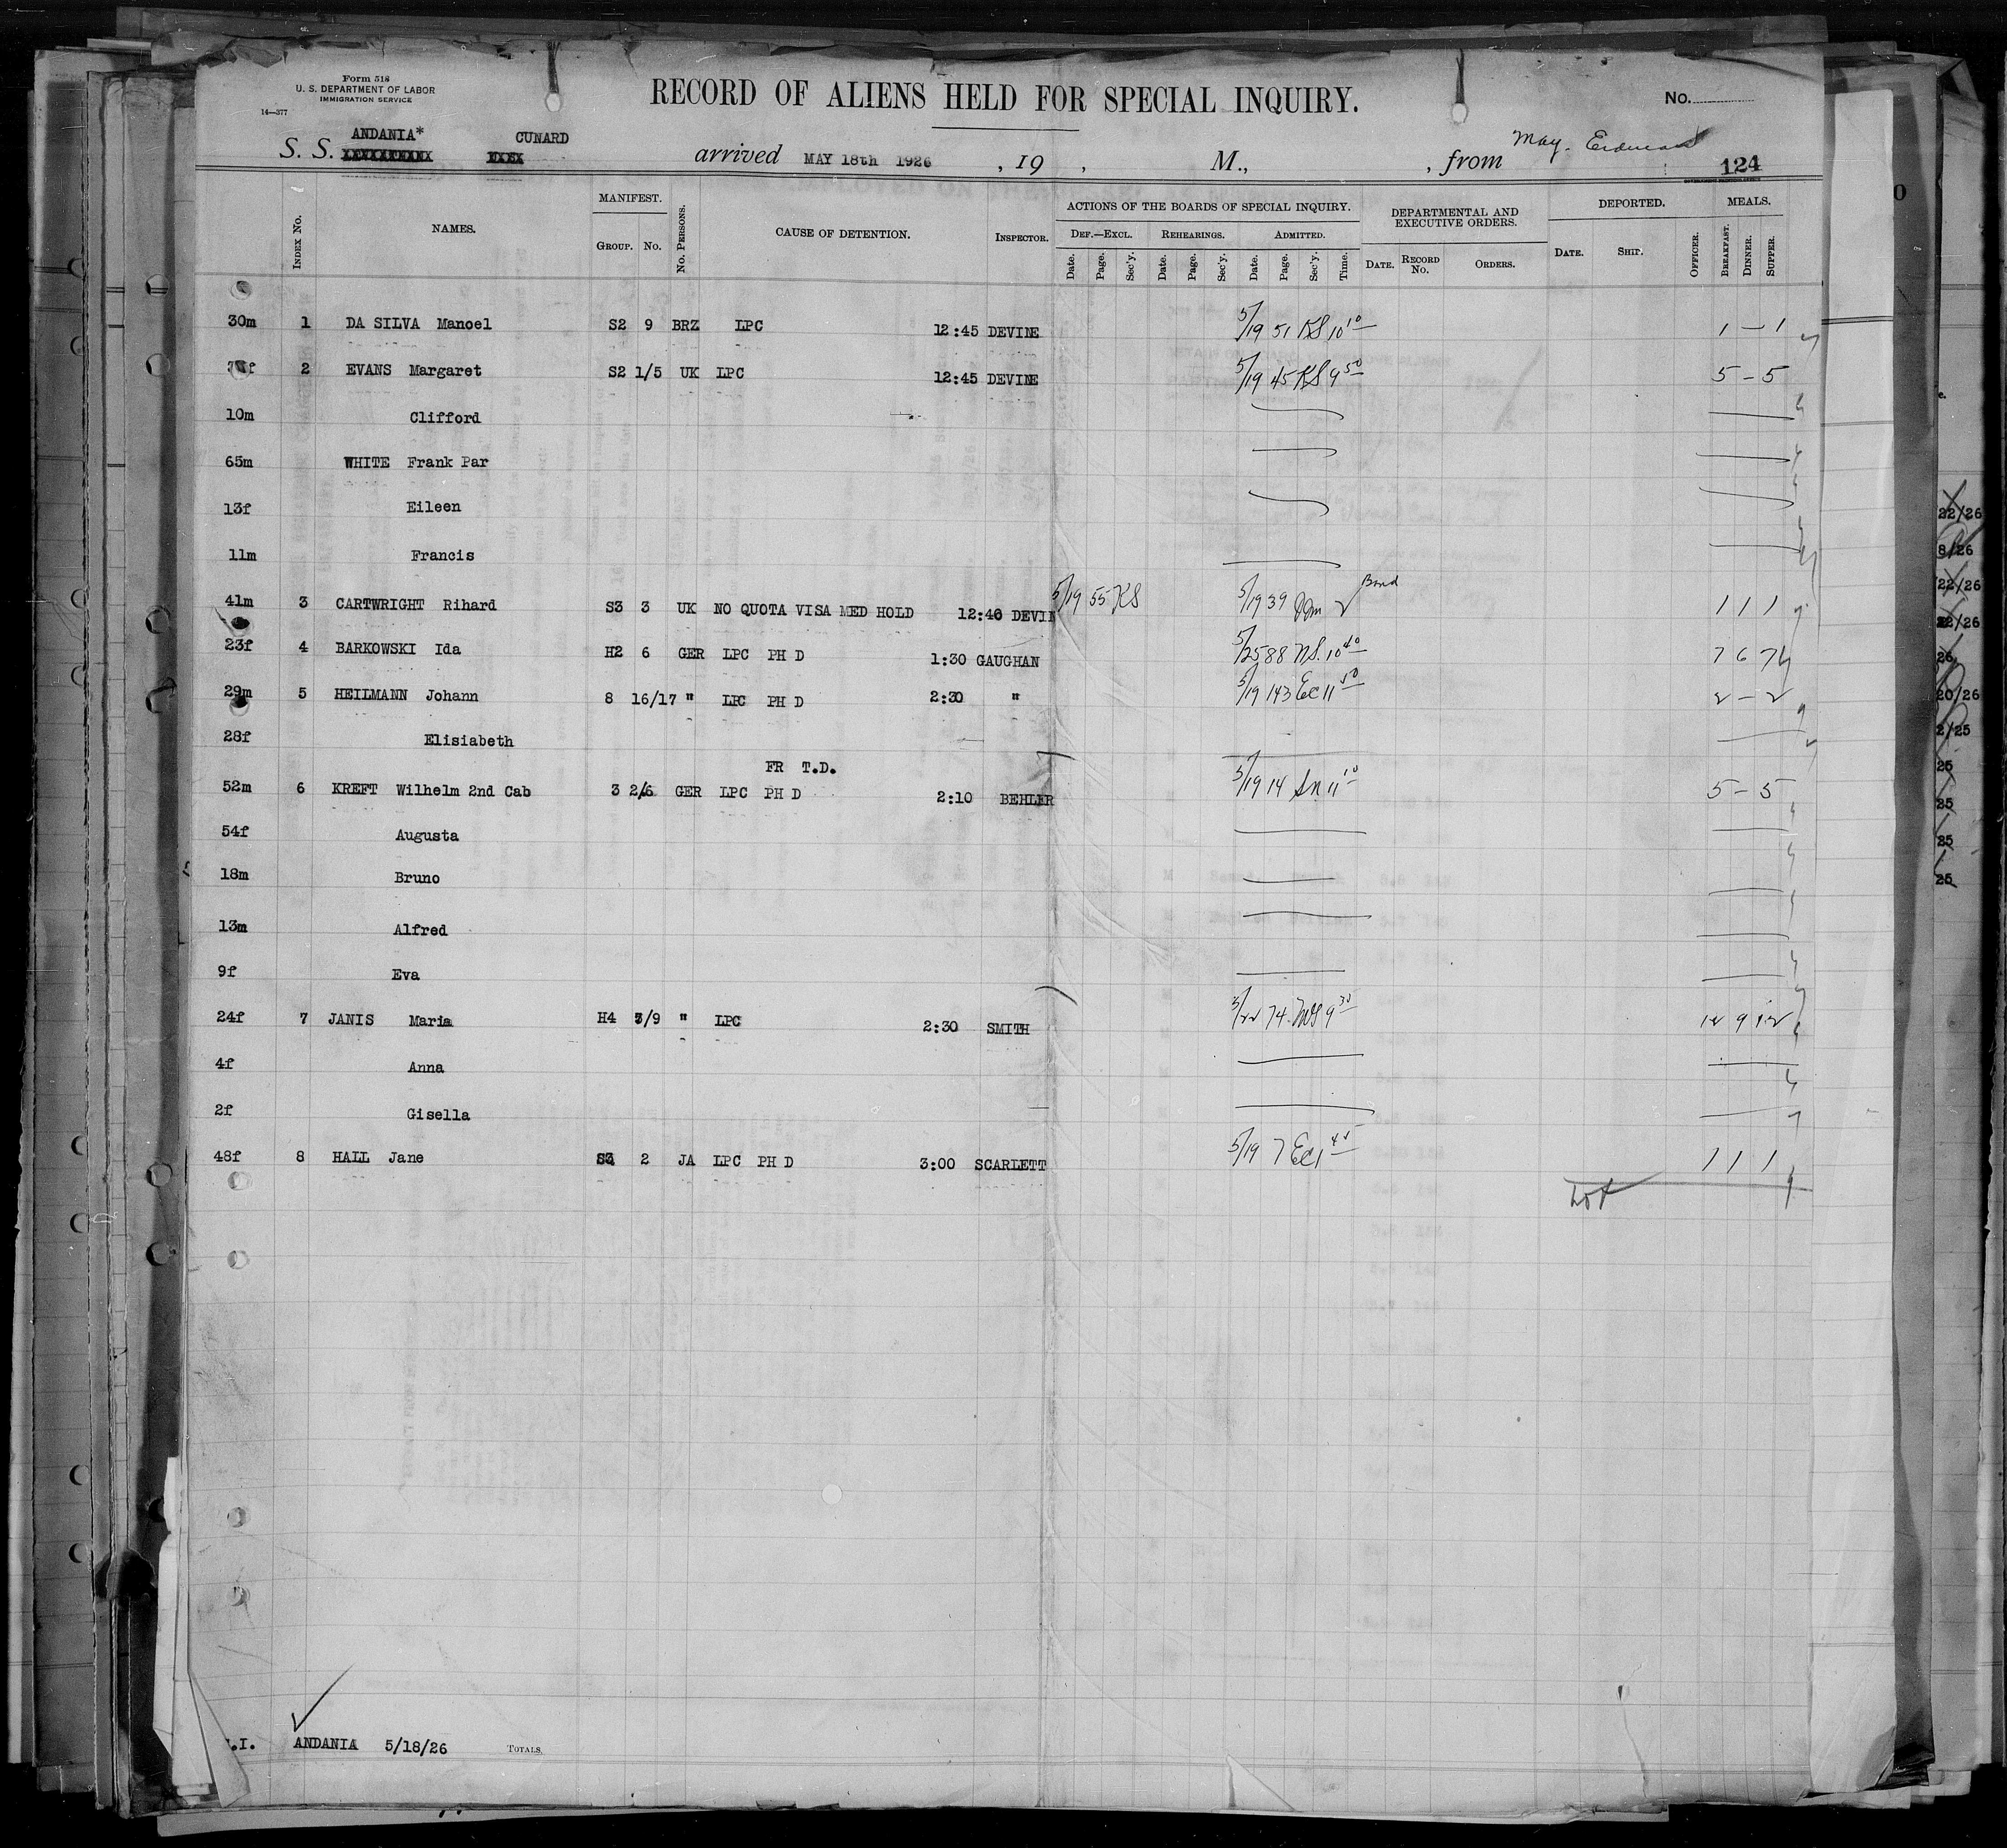 Form 518
U. S. DEPARTMENT OF LABOR
IMMIGRATION SERVICE
14—377
RECORD OF ALIENS HELD FOR SPECIAL INQUIRY.
No.
ANDANIA* CUNARD
S. S. arrived MAY 18th 1926 , 19 , M., , from May.
124
INDEX No. NAMES. MANIFEST. GROUP. No. No. PERSONS. CAUSE OF DETENTION. INSPECTOR.
ACTIONS OF THE BOARDS OF SPECIAL INQUIRY. DEF.—EXCL. REHEARINGS. ADMITTED.
Date. Page. Sec'y. Date. Page. Sec'y. Date. Page. Sec'y. Time.
DEPARTMENTAL AND EXECUTIVE ORDERS. DATE. RECORD No. ORDERS.
DEPORTED. DATE. SHIP. OFFICER. MEALS. BREAKFAST. DINNER. SUPPER.
30m 1 DA SILVA Manoel S2 9 BRZ LPC 12:45 DEVINE 5/19 51 KS 10 10 1 – 1
2 EVANS Margaret S2 1/5 UK LPC 12:45 DEVINE 5/19 45 KS 9 50 5 – 5
10m Clifford
65m WHITE Frank Par
13f Eileen
11m Francis
41m 3 CARTWRIGHT Rihard S3 3 UK NO QUOTA VISA MED HOLD 12:46 DEVIN 5/19 55 KS 5/19 39 2 Bond 1 1 1
23f 4 BARKOWSKI Ida H2 6 GER LPC PH D 1:30 GAUGHAN 5/25 88 NS. 10 40 7 6 7
29m 5 HEILMANN Johann 8 16/17 " LPC PH D 2:30 " 5/19 143 EC 11 50 2 – 2
28f Elisiabeth
FR T.D.
52m 6 KREFT Wilhelm 2nd Cab 3 2/6 GER LPC PH D 2:10 BEHLER 5/19 14 11 10 5 – 5
54f Augusta
18m Bruno
13m Alfred
9f Eva
24f 7 JANIS Maria H4 /9 " LPC 2:30 SMITH 5/22 74 9 30 12 9 12
4f Anna
2f Gisella
48f 8 HALL Jane S3 2 JA LPC PH D 3:00 SCARLETT 5/19 7 EC 1 45 1 1 1
.I. ANDANIA 5/18/26 TOTALS.
22/26
8/26
22/26
22/26
26
20/26
2/25
25
25
25
25